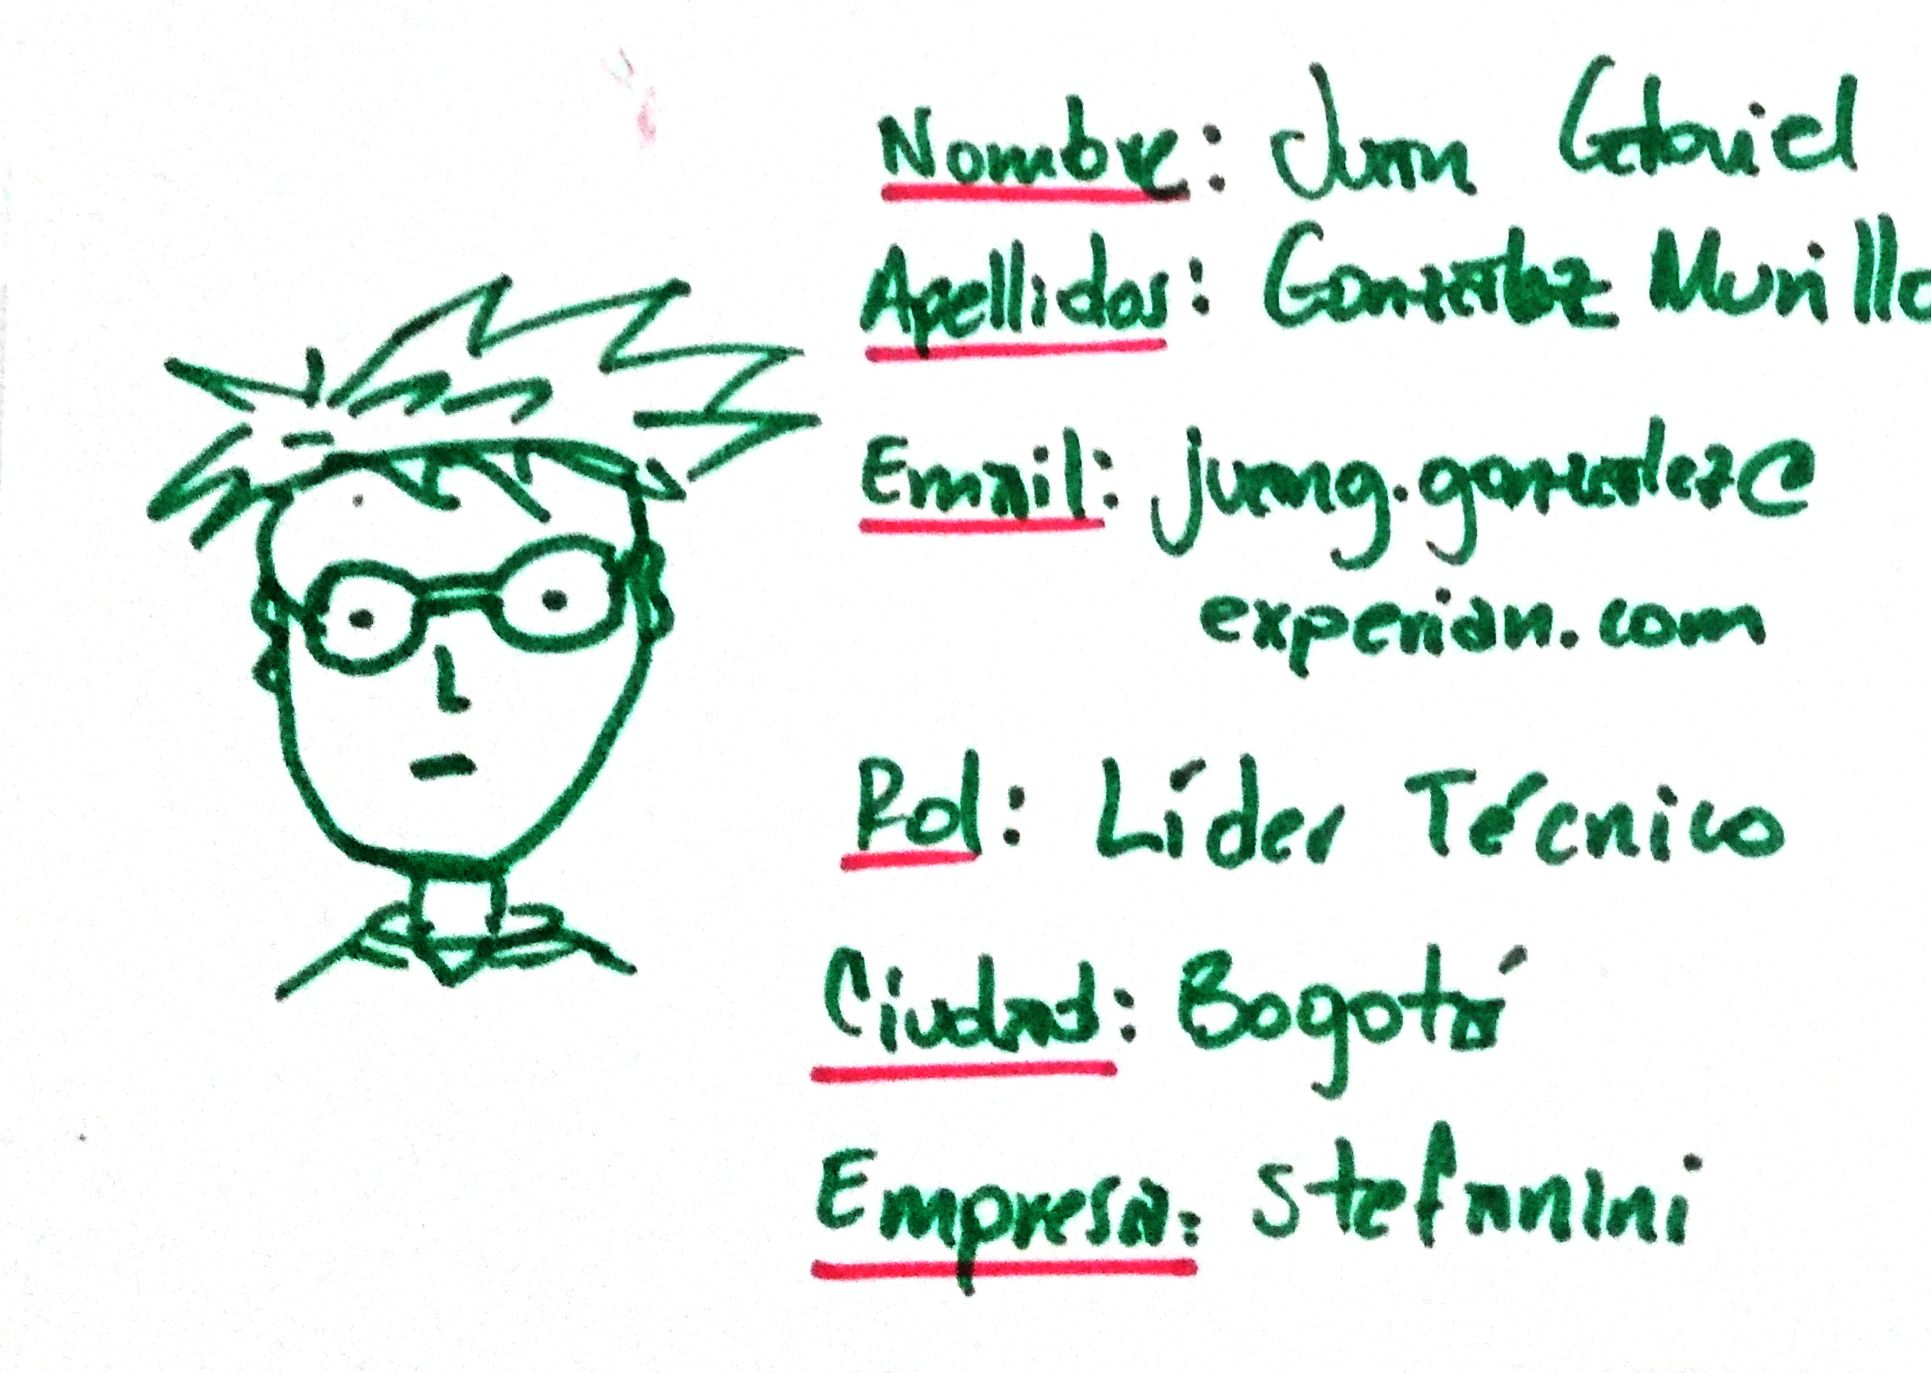 Nombre: Juan Gabriel
Apellidos: Gonzalez Murillo
Email: juang.gonzalez@
experian.com
Rol: Líder Técnico
Ciudad: Bogotá
Empresa: Stefanini